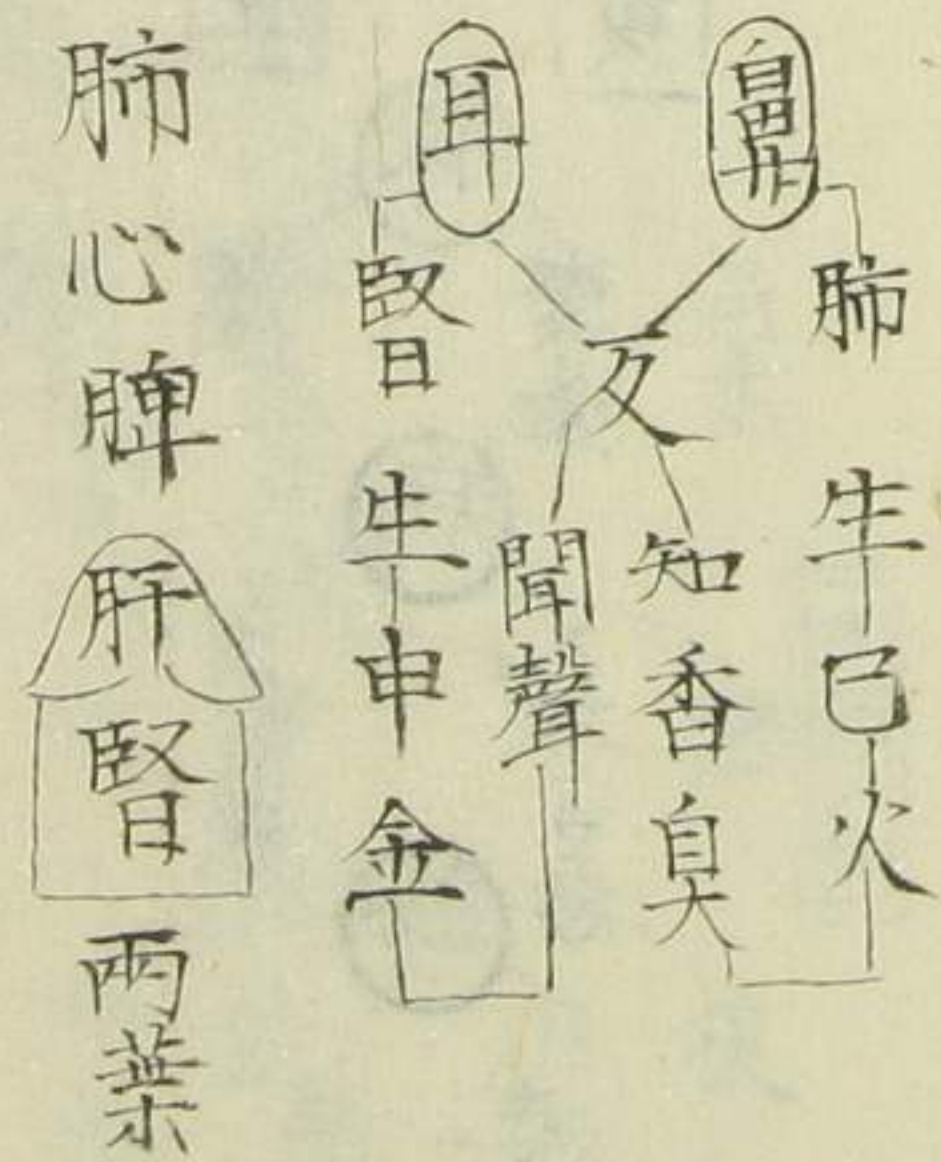 鼻
肺生巳火
知香臭
反
聞聲
耳
腎生申金
肺心脾肝腎兩葉